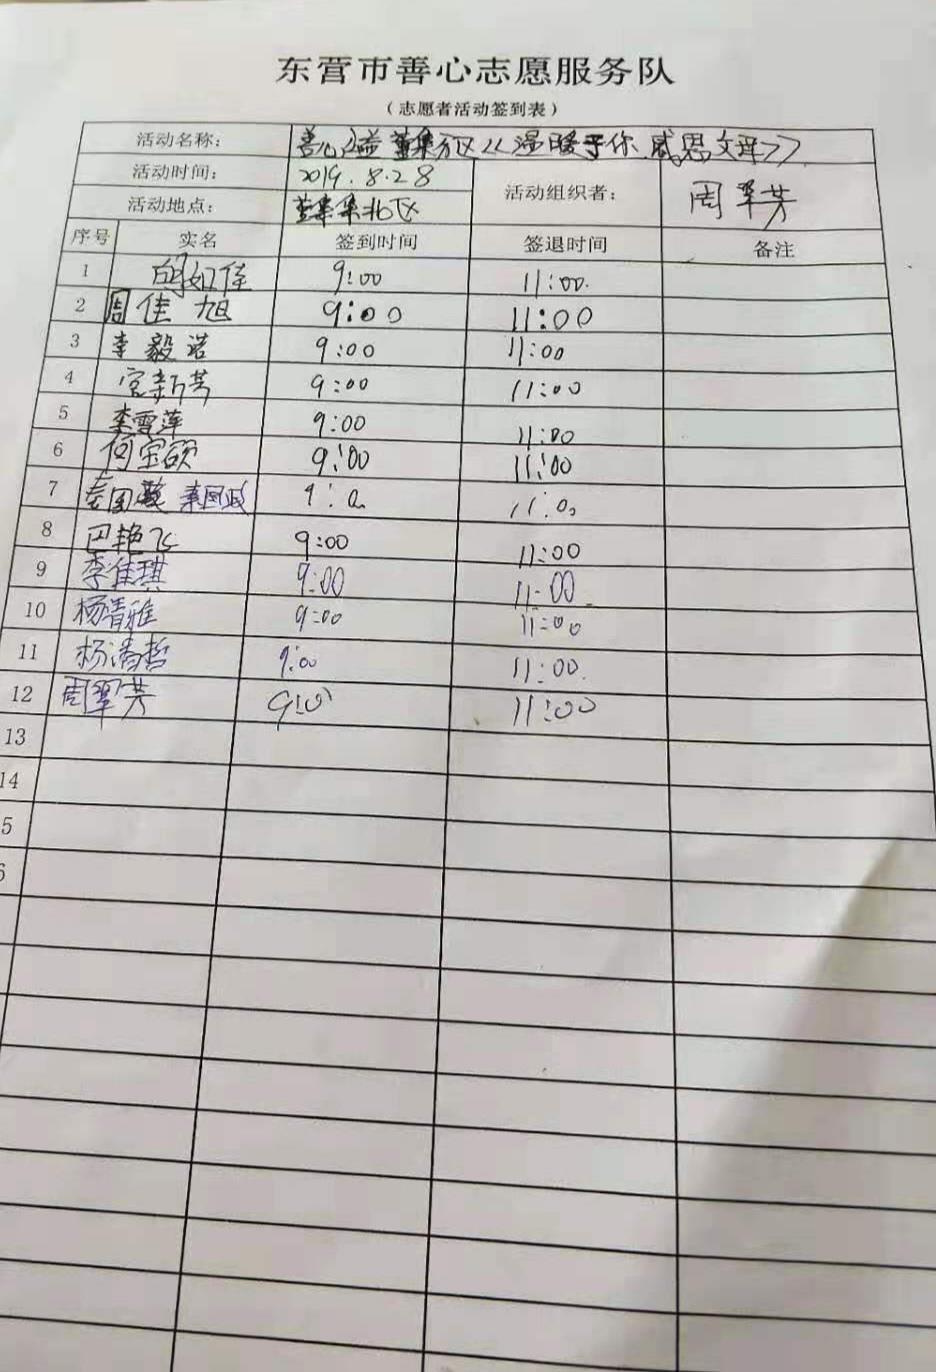 东营市善心志愿服务队
（志愿者活动签到表）
活动名称： 善心公益董集分区<<温暖于你 感恩文译>>
活动时间： 2019.8.28 活动组织者： 周翠芳
活动地点： 董集集北区
序号 实名 签到时间 签退时间 备注
1 如佳 9:00 11:00.
2 周佳旭 9:00 11:00
3 李毅诺 9:00 11:00
4 宫新芳 9:00 11:00
5 李雪萍 9:00 11:00
6 何宝硕 9:00 11:00
7 李国政 9:0 11:00
8 巴艳飞 9:00 11:00
9 李佳琪 9:00 11:00
10 杨清雅 9:00 11:00
11 杨浩哲 9:00 11:00.
12 周翠芳 9:00 11:00
13
14
5